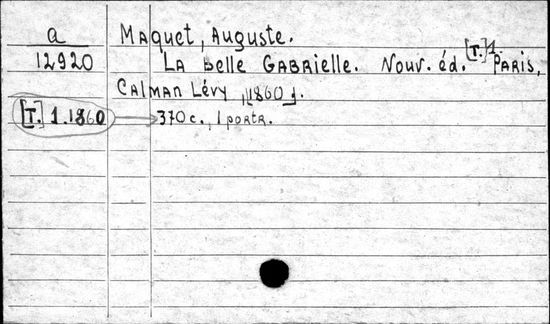 a
12920
Maquet, Auguste.
La Belle Gabrielle. Nouv. éd. [T.] 1. Paris,
Calman Lévy, [1860].
[T.] 1.1860
370c., 1 portr.